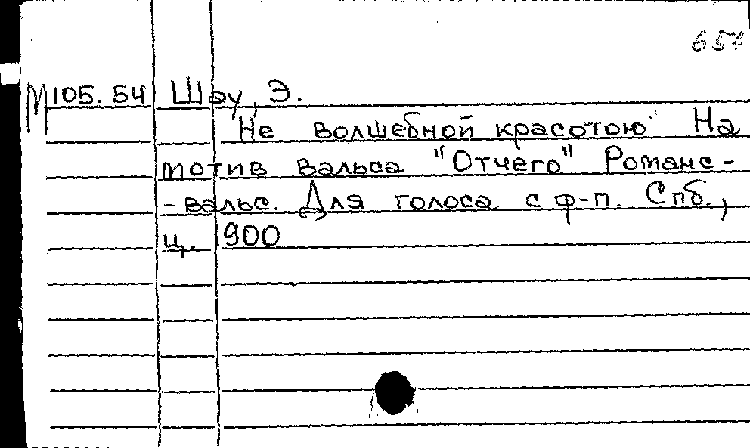 657
М 105.54 Шау, Э.
Не волшебной красотою" На
мотив вальса "Отчего" Романс-
-вальс. Для голоса с ф-п. Спб.,
ц. 900